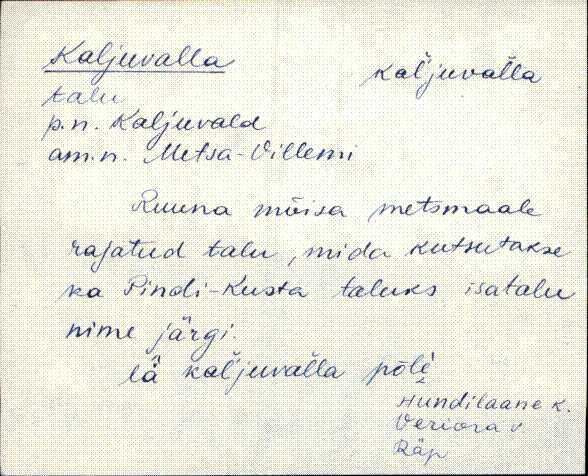 Kaljuvalla kal̆juval̆la
talu
p.n. Kaljuvald
am.n. Metsa-Villemi
Ruuna mõisa metsmaale
rajatud talu, mida kutsutakse
ka Pindi-Kusta taluks isatalu
nime järgi.
lä kal̆juval̆la põlè
Hundilaane k.
Veriora v.
Räp